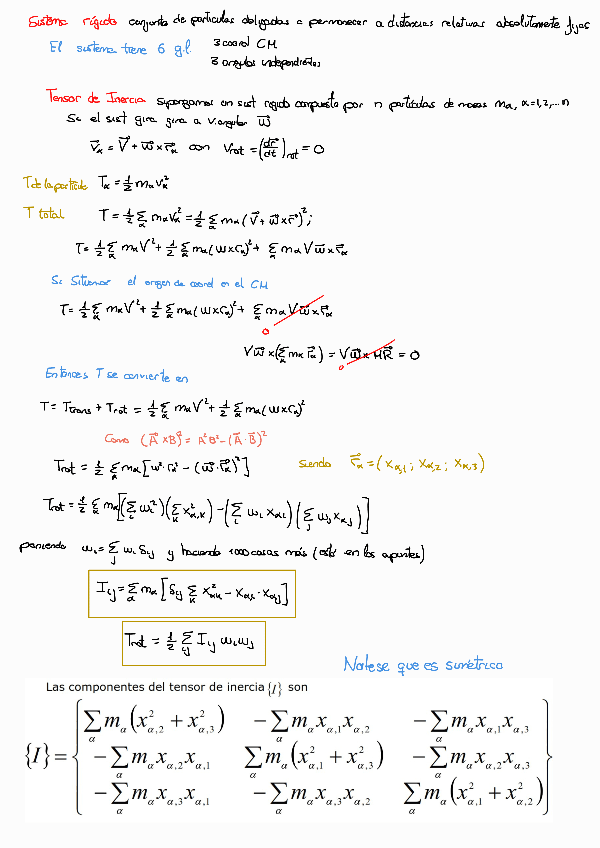 Sistema rígido conjunto de partículas obligadas a permanecer a distancias relativas absolutamente fijas
El sistema tiene 6 g.l. 3 coord CM
3 ángulos independientes
Tensor de Inercia Supongamos un sist rígido compuesto por n partículas de masas mα, α=1,2,...n
Si el sist gira gira a v.angular ω⃗
V⃗α = V⃗ + ω⃗ × r⃗α con Vrot = (dr⃗/dt)rot = 0
T de la partícula Tα = 1/2 mα Vα²
T total T = 1/2 Σα mα Vα² = 1/2 Σα mα (V⃗ + ω⃗ × r⃗)²;
T = 1/2 Σα mα V² + 1/2 Σα mα (ω × rα)² + Σα mα V ω⃗ × r⃗α
Si situamos el origen de coord en el CM
T = 1/2 Σα mα V² + 1/2 Σα mα (ω × rα)² + Σα mα V ω⃗ × r⃗α
0
V ω⃗ × (Σα mα r⃗α) = V ω⃗ × M R⃗ = 0
0
Entonces T se convierte en
T = Ttrans + Trot = 1/2 Σα mα V² + 1/2 Σα mα (ω × rα)²
Como (A⃗ × B⃗)² = A²B² - (A⃗ · B⃗)²
Trot = 1/2 Σα mα [ω² · rα² - (ω⃗ · r⃗α)²] siendo r⃗α = (xα,1 ; xα,2 ; xα,3)
Trot = 1/2 Σα mα [(Σi ωi²)(Σk x²α,k) - (Σi ωi xα,i)(Σj ωj xα,j)]
poniendo ωi = Σj ωj δij y haciendo 1000 cosas más (está en los apuntes)
Iij = Σα mα [δij Σk x²α,k - xα,i · xα,j]
Trot = 1/2 Σij Iij ωi ωj
Nótese que es simétrico
Las componentes del tensor de inercia {I} son
Σα mα(x²α,2 + x²α,3) -Σα mα xα,1 xα,2 -Σα mα xα,1 xα,3
{I} = { -Σα mα xα,2 xα,1 Σα mα(x²α,1 + x²α,3) -Σα mα xα,2 xα,3 }
-Σα mα xα,3 xα,1 -Σα mα xα,3 xα,2 Σα mα(x²α,1 + x²α,2)